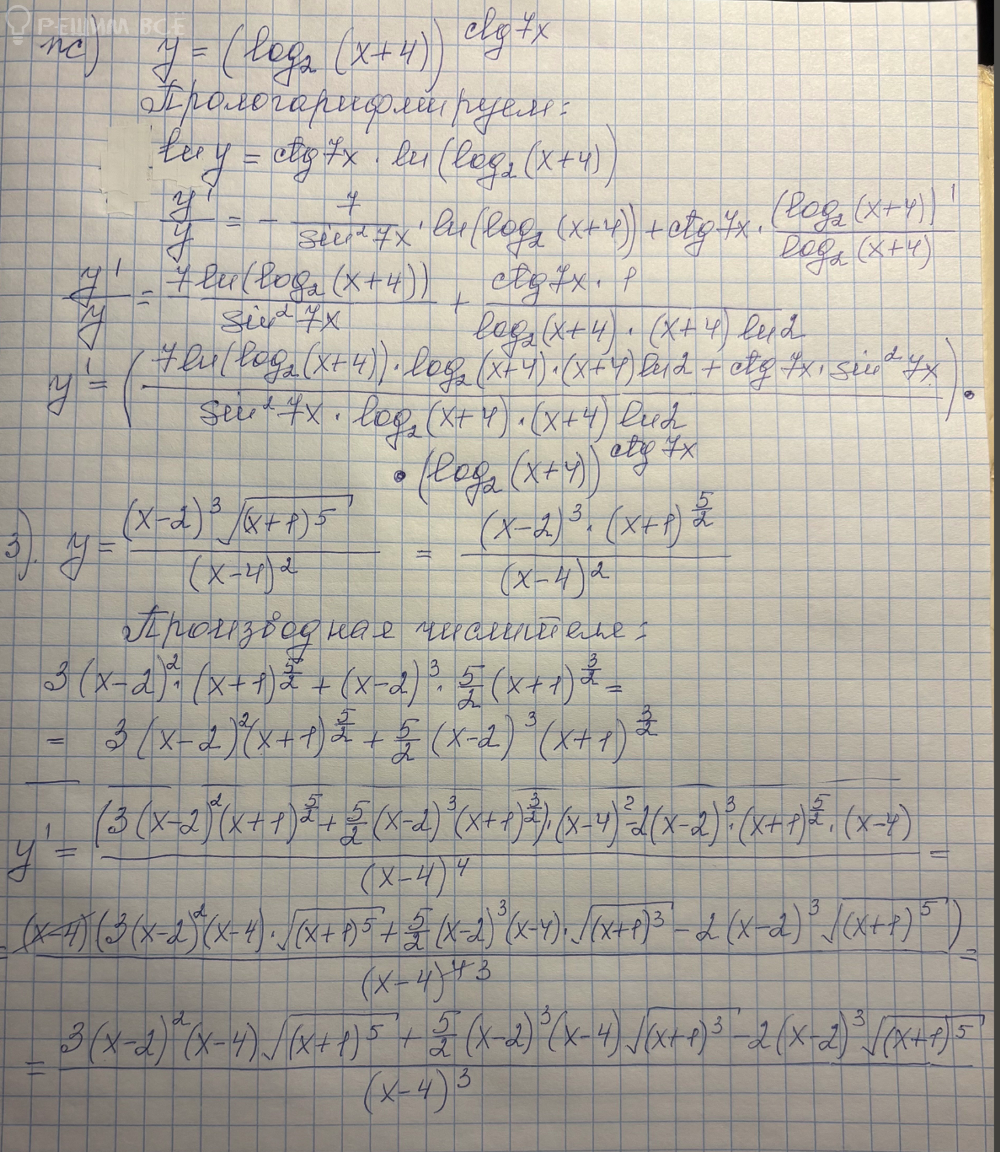 РЕШИМ ВСЁ
ж) y = (log₂ (x+4))^(ctg 7x)
Прологарифмируем:
ln y = ctg 7x · ln(log₂ (x+4))
y'/y = - 7/(sin² 7x) · ln(log₂ (x+4)) + ctg 7x · (log₂ (x+4))'/(log₂ (x+4))
y'/y = (7 ln(log₂ (x+4)))/(sin² 7x) + (ctg 7x · 1)/(log₂(x+4) · (x+4) ln 2)
y' = ((7 ln(log₂(x+4)) · log₂(x+4) · (x+4) ln 2 + ctg 7x · sin² 7x)/(sin² 7x · log₂(x+4) · (x+4) ln 2)) ·
· (log₂ (x+4))^(ctg 7x)
3). y = ((x-2)³ √((x+1)⁵))/((x-4)²) = ((x-2)³ · (x+1)^(5/2))/((x-4)²)
Производная числителя:
3(x-2)² · (x+1)^(5/2) + (x-2)³ · 5/2 (x+1)^(3/2) =
= 3(x-2)²(x+1)^(5/2) + 5/2 (x-2)³ (x+1)^(3/2)
y' = ((3(x-2)²(x+1)^(5/2) + 5/2 (x-2)³(x+1)^(3/2)) · (x-4)² - 2(x-2)³ · (x+1)^(5/2) · (x-4))/((x-4)⁴) =
= ((x-4)(3(x-2)²(x-4) · √((x+1)⁵) + 5/2 (x-2)³(x-4) · √((x+1)³) - 2(x-2)³ √((x+1)⁵)))/((x-4)^(4 3)) =
= (3(x-2)²(x-4) √((x+1)⁵) + 5/2 (x-2)³(x-4) √((x+1)³) - 2(x-2)³ √((x+1)⁵))/((x-4)³)